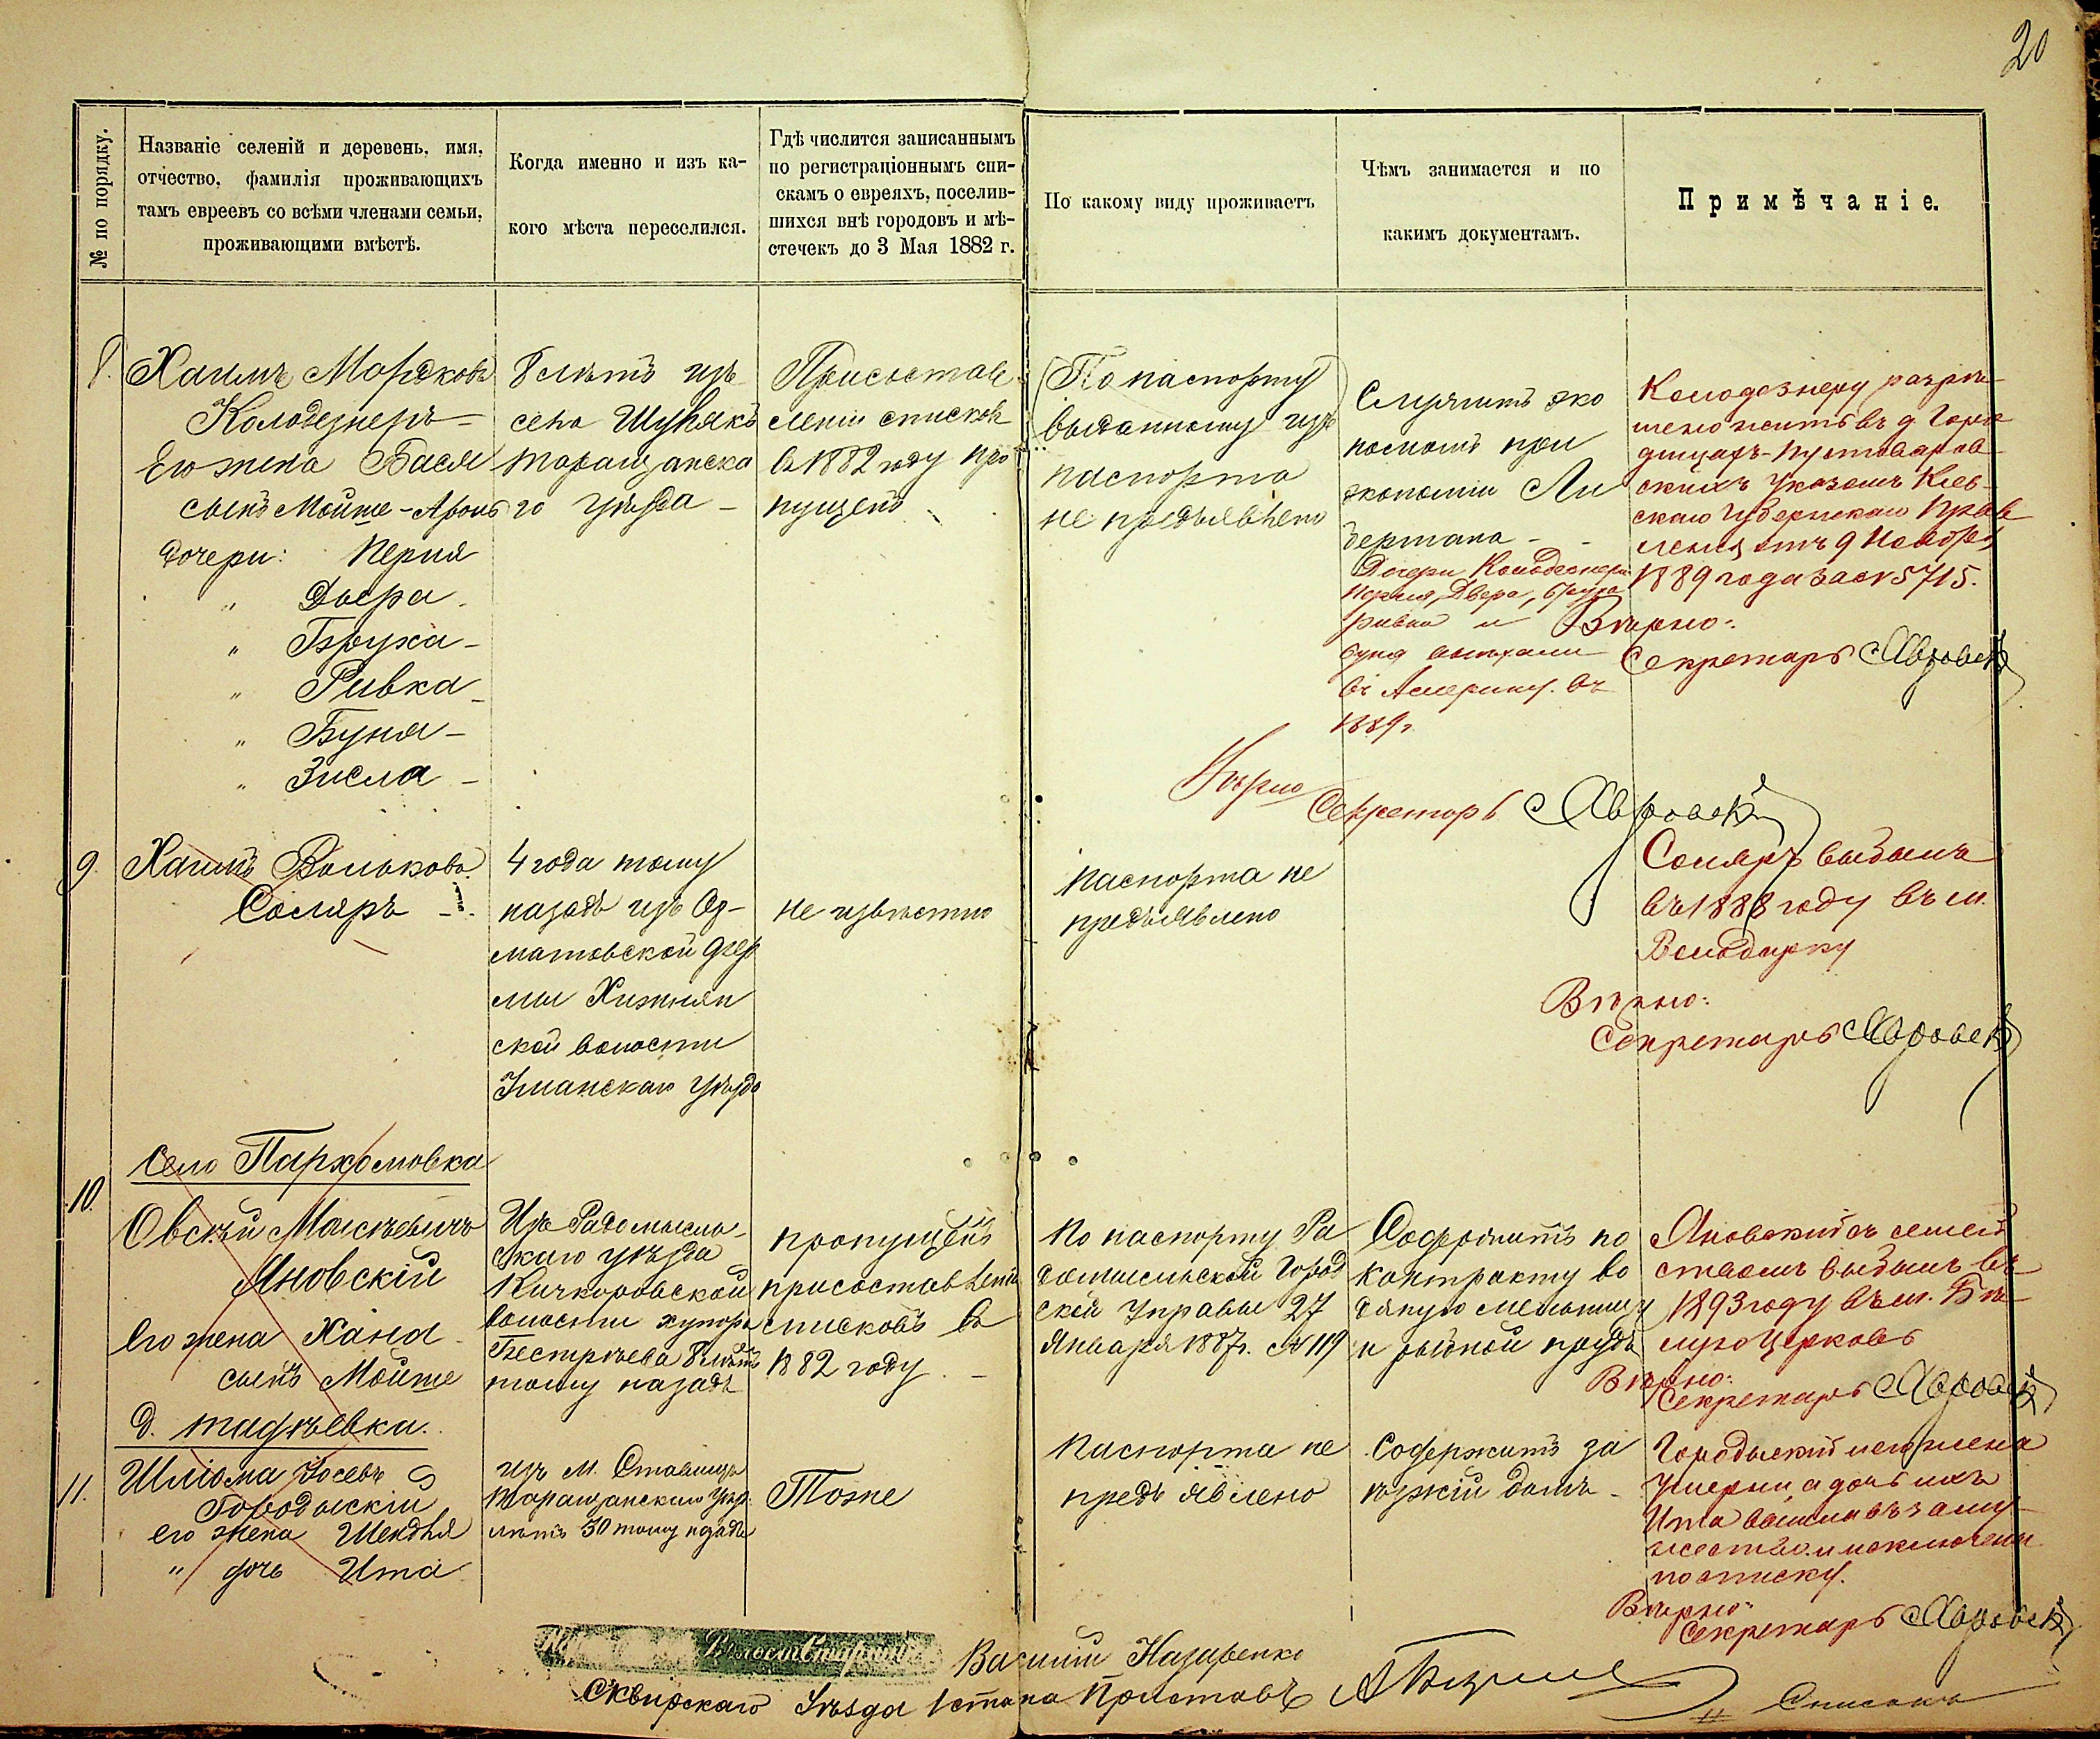 20
№ по порядку.
Названіе селеній и деревень, имя,
отчество, фамилія проживающихъ
тамъ евреевъ со всѣми членами семьи,
проживающими вмѣстѣ.
Когда именно и изъ ка-
кого мѣста переселился.
Гдѣ числится записаннымъ
по регистраціоннымъ спи-
скамъ о евреяхъ, поселив-
шихся внѣ городовъ и мѣ-
стечекъ до 3 Мая 1882 г.
По какому виду проживаетъ
Чѣмъ занимается и по
какимъ документамъ.
Примѣчаніе.
8.
Хаимъ Мордковъ
Колодезнеръ
Его жена Бася
сынъ Мойше-Аронъ
дочери: Перня
" Двера
" Бруха
" Ривка
" Буня
" Зисла
8 лѣтъ изъ
села Шулякъ
Таращанска
го уѣзда
При состав
леніи списковъ
въ 1882 году про
пущенъ
По паспорту
выданному изъ
паспорта
не предъявлено
Служитъ эко
номомъ при
экономіи Ли
бермана
Дочери Колодезнера
Перня, Двера, Бруха
Ривка и
Буня выѣхали
въ Америку въ
1889 г.
Вѣрно
Секретарь
Колодезнеру разрѣ-
шено жить въ д. Горо
дищахъ-Пустоваров-
скихъ Указомъ Кіев-
скаго Губернскаго Прав
ленія отъ 9 Ноября
1889 года за № 5715.
Вѣрно:
Секретарь
9.
Хаимъ Вольковъ
Соляръ
4 года тому
назадъ изъ Ос-
матовской фер
мы Хижнян
ской волости
Уманскаго уѣзда
не извѣстно
паспорта не
предъявлено
Соляръ выбылъ
въ 1888 году въ м.
Володарку
Вѣрно:
Секретарь
Село Пархомовка
10.
Овсѣй Моисѣевичъ
Яновскій
Его жена Хана
сынъ Мойше
Изъ Радомысль-
скаго уѣзда
Кичкоровской
волости хутора
Бестрѣева 8 лѣтъ
тому назадъ
пропущенъ
при составленіи
списковъ въ
1882 году
По паспорту Ра
домысльской Город
ской Управы 27
Января 1887 г. № 119
Содержитъ по
контракту во
дяную мельницу
и рыбной прудъ
Яновскій съ семей
ствомъ выбылъ въ
1893 году въ м. Бѣ-
лую Церковь
Вѣрно:
Секретарь
д. Тадѣевка.
11.
Шліома Іосевъ
Городыскій
его жена Шендля
" дочь Ита
изъ м. Ставищъ
Таращанскаго уѣзд.
лѣтъ 30 тому назадъ
Тоже
Паспорта не
предъявлено
Содержитъ за
ѣзжій домъ
Городыскій и его жена
умерли а дочь ихъ
Ита вышла въ заму
жество и исключены
по списку.
Вѣрно:
Секретарь
Василій Назаренко
Сквирскаго Уѣзда 1 стана Приставъ
Списокъ